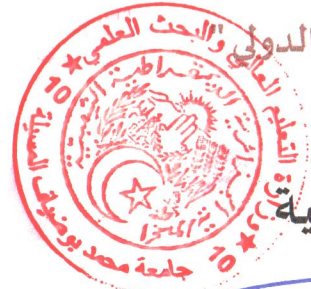 الدولي
وزارة التعليم العالي والبحث العلمي
الجمهورية الجزائرية الديمقراطية الشعبية
جامعة محمد بوضياف المسيلة
10
10
ية